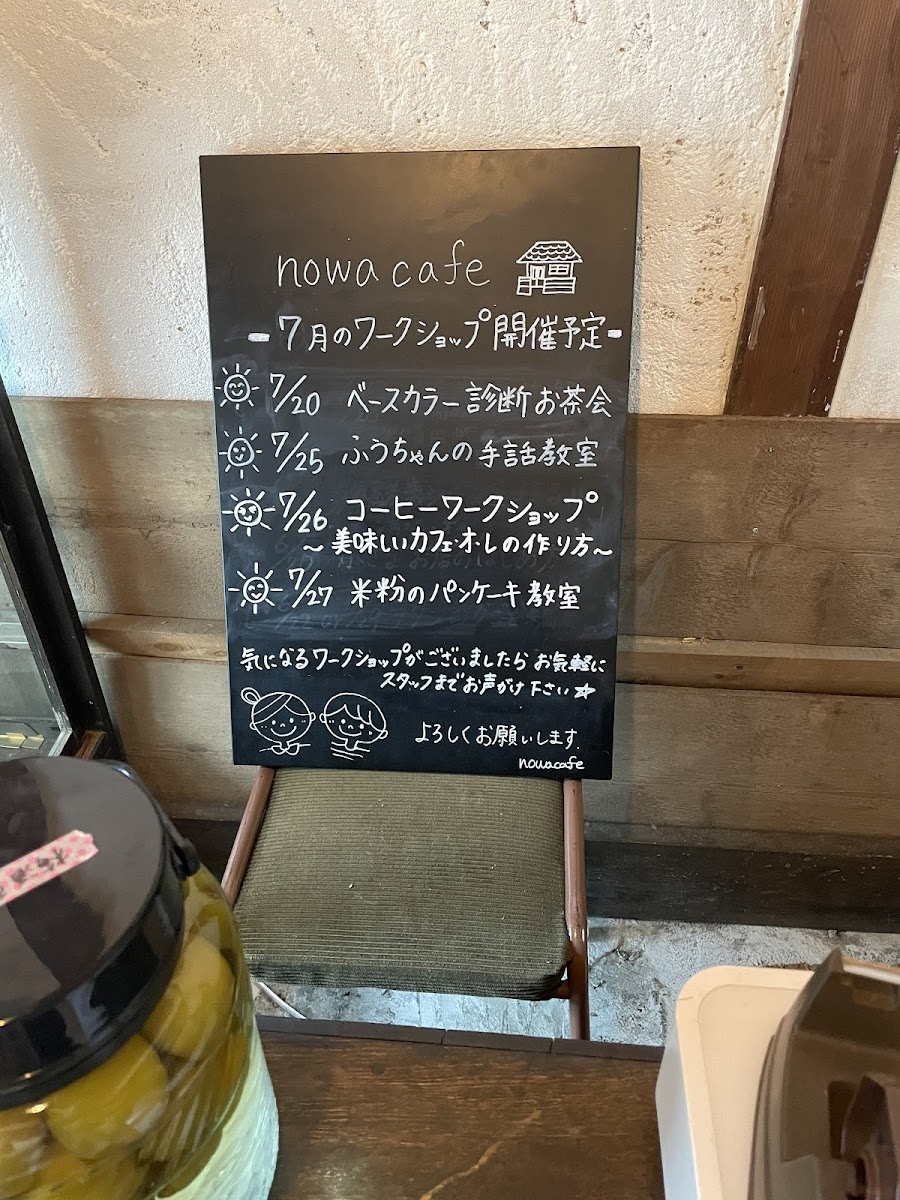 nowa cafe
-7月のワークショップ開催予定-
7/20 ベースカラー診断お茶会
7/25 ふうちゃんの手話教室
7/26 コーヒーワークショップ
～美味しいカフェ・オ・レの作り方～
7/27 米粉のパンケーキ教室
気になるワークショップがございましたらお気軽に
スタッフまでお声がけ下さい☆
よろしくお願いします.
nowacafe